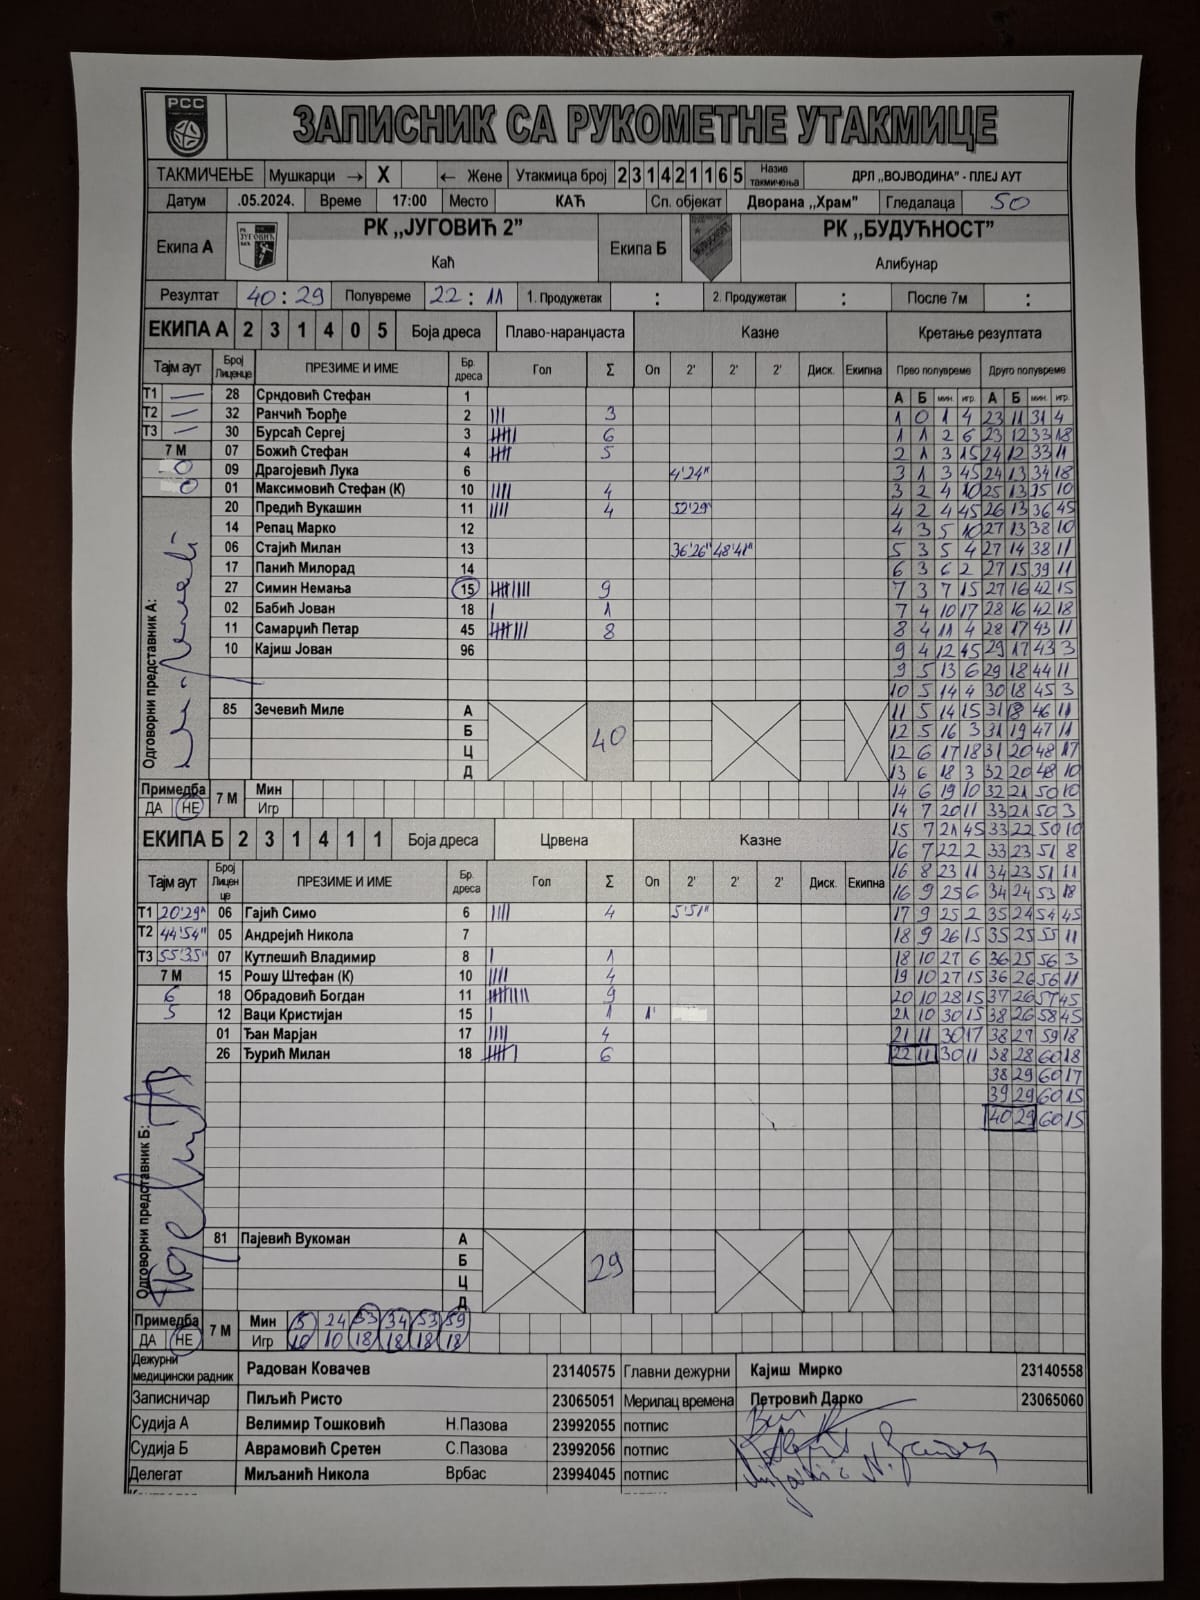 РСС
ЗАПИСНИК СА РУКОМЕТНЕ УТАКМИЦЕ
ТАКМИЧЕЊЕ Мушкарци → X ← Жене Утакмица број 2 3 1 4 2 1 1 6 5 Назив такмичења ДРЛ „ВОЈВОДИНА" - ПЛЕЈ АУТ
Датум .05.2024. Време 17:00 Место КАЋ Сп. објекат Дворана „Храм" Гледалаца 50
Екипа А РК „ЈУГОВИЋ 2" Каћ Екипа Б РК „БУДУЋНОСТ" Алибунар
Резултат 40 : 29 Полувреме 22 : 11 1. Продужетак : 2. Продужетак : После 7м :
ЕКИПА А 2 3 1 4 0 5 Боја дреса Плаво-наранџаста Казне Кретање резултата
Тајм аут Број Лиценце ПРЕЗИМЕ И ИМЕ Бр. дреса Гол Σ Оп 2' 2' 2' Диск. Екипна Прво полувреме Друго полувреме
А Б мин. игр. А Б мин. игр.
Т1 — 28 Срндовић Стефан 1
Т2 — 32 Ранчић Ђорђе 2 III 3
Т3 — 30 Бурсаћ Сергеј 3 6
7 М 07 Божић Стефан 4 5
0 09 Драгојевић Лука 6 4'24"
0 01 Максимовић Стефан (К) 10 IIII 4
20 Предић Вукашин 11 IIII 4 52'29"
14 Репац Марко 12
06 Стајић Милан 13 36'26" 48'41"
17 Панић Милорад 14
27 Симин Немања 15 9
02 Бабић Јован 18 I 1
11 Самарџић Петар 45 8
10 Кајиш Јован 96
85 Зечевић Миле А
Б
Ц
Д
40
Одговорни представник А:
Примедба ДА НЕ 7 М Мин Игр
1 0 1 4 23 11 31 4
1 1 2 6 23 12 33 18
2 1 3 15 24 12 33 11
3 1 3 45 24 13 34 18
3 2 4 10 25 13 35 10
4 2 4 45 26 13 36 45
4 3 5 10 27 13 38 10
5 3 5 4 27 14 38 11
6 3 6 2 27 15 39 11
7 3 7 15 27 16 42 15
7 4 10 17 28 16 42 18
8 4 11 4 28 17 43 11
9 4 12 45 29 17 43 3
9 5 13 6 29 18 44 11
10 5 14 4 30 18 45 3
11 5 14 15 31 18 46 11
12 5 16 3 31 19 47 11
12 6 17 18 31 20 48 17
13 6 18 3 32 20 48 10
14 6 19 10 32 21 50 10
14 7 20 11 33 21 50 3
15 7 21 45 33 22 50 10
16 7 22 2 33 23 51 8
16 8 23 11 34 23 51 11
16 9 25 6 34 24 53 18
17 9 25 2 35 24 54 45
18 9 26 15 35 25 55 11
18 10 27 6 36 25 56 3
19 10 27 15 36 26 56 11
20 10 28 15 37 26 57 45
21 10 30 15 38 26 58 45
21 11 30 17 38 27 59 18
22 11 30 11 38 28 60 18
38 29 60 17
39 29 60 15
40 29 60 15
ЕКИПА Б 2 3 1 4 1 1 Боја дреса Црвена Казне
Тајм аут Број Лиценце ПРЕЗИМЕ И ИМЕ Бр. дреса Гол Σ Оп 2' 2' 2' Диск. Екипна
Т1 20'29" 06 Гајић Симо 6 IIII 4 5'51"
Т2 44'54" 05 Андрејић Никола 7
Т3 55'35" 07 Кутлешић Владимир 8 I 1
7 М 15 Рошу Штефан (К) 10 IIII 4
6 18 Обрадовић Богдан 11 9
5 12 Ваци Кристијан 15 I 1 1'
01 Ђан Марјан 17 IIII 4
26 Ђурић Милан 18 6
81 Пајевић Вукоман А
Б
Ц
Д
29
Одговорни представник Б:
Примедба ДА НЕ 7 М Мин 5 24 33 34 53 59
Игр 10 10 18 18 18 18
Дежурни медицински радник Радован Ковачев 23140575 Главни дежурни Кајиш Мирко 23140558
Записничар Пиљић Ристо 23065051 Мерилац времена Петровић Дарко 23065060
Судија А Велимир Тошковић Н.Пазова 23992055 потпис
Судија Б Аврамовић Сретен С.Пазова 23992056 потпис
Делегат Миљанић Никола Врбас 23994045 потпис